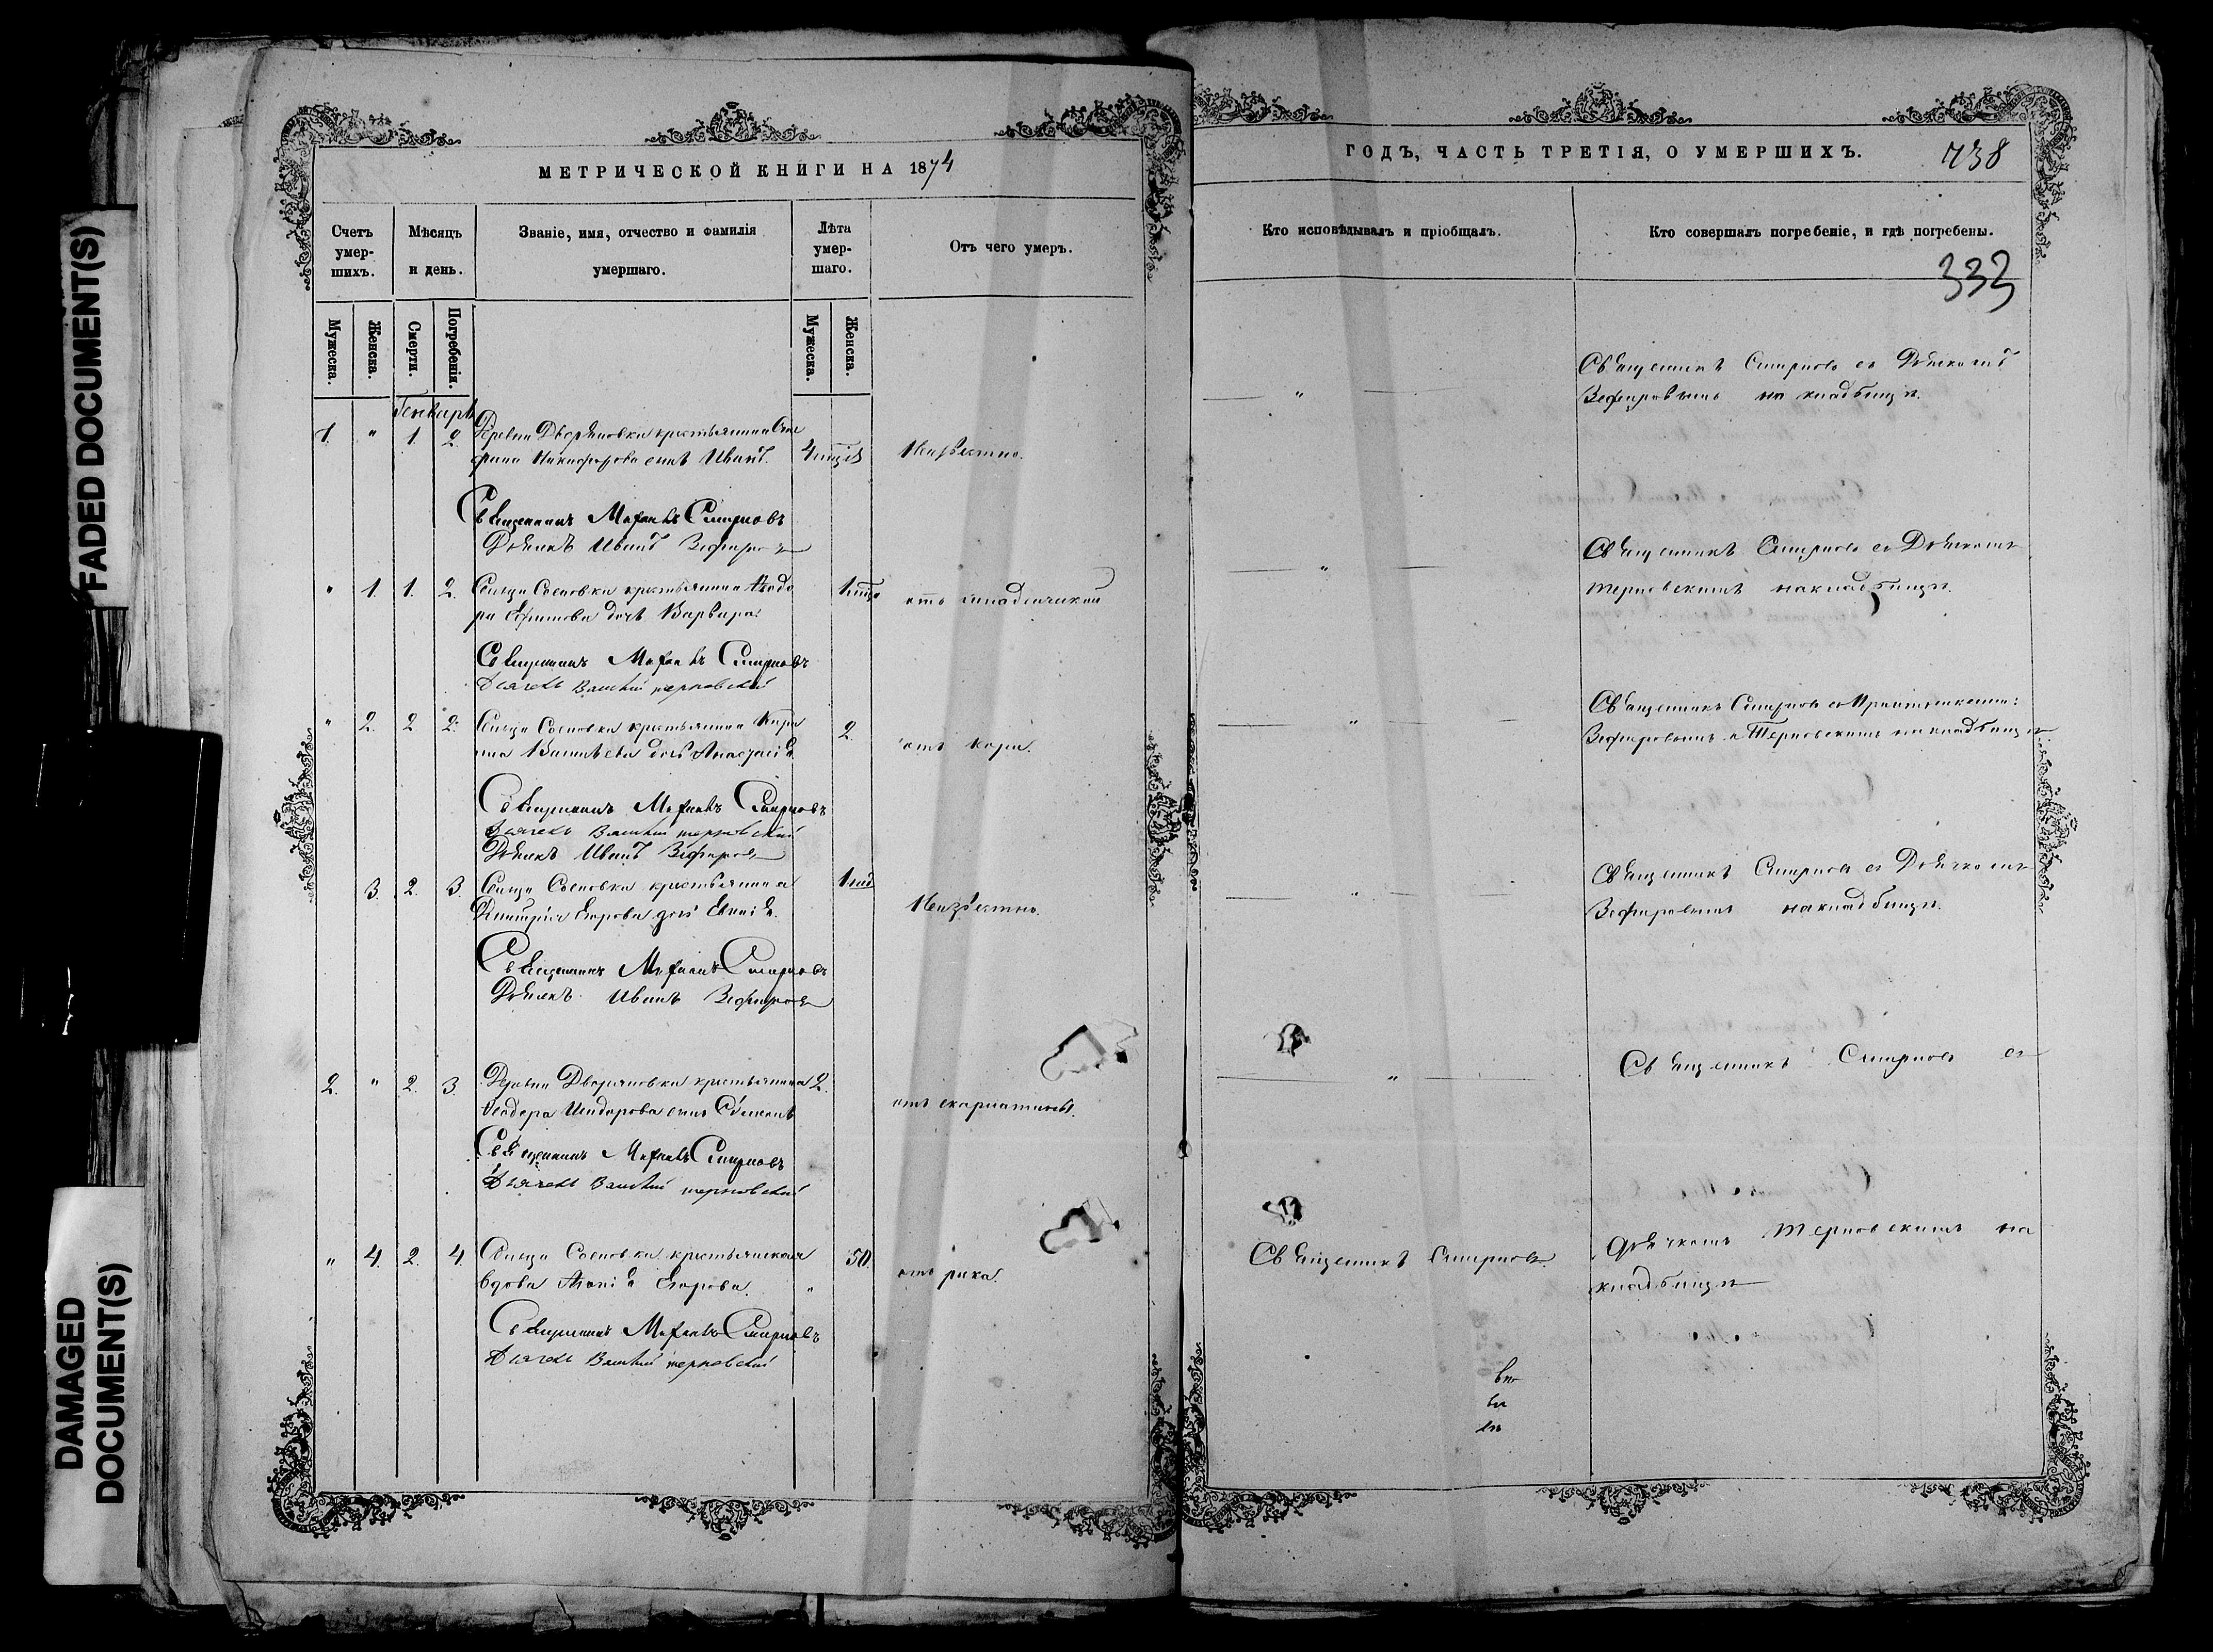 FADED DOCUMENT(S)
DAMAGED
DOCUMENT(S)
МЕТРИЧЕСКОЙ КНИГИ НА 1874
Счетъ
умер-
шихъ.
Мѣсяцъ
и день.
Званіе, имя, отчество и фамилія
умершаго.
Лѣта
умер-
шаго.
Отъ чего умеръ.
Мужеска.
Женска.
Смерти.
Погребенія.
Мужеска.
Женска.
Генварь
1. " 1 2. Деревни Дворяновки крестьянина
Никифорова сынъ Иванъ. Неизвѣстно.
Священникъ Смирновъ
Дьячекъ Иванъ Зефировъ
" 1. 1. 2. Сельца Сосновки крестьянина Ѳеодо
ра Ефимова дочь Варвара.
Священникъ Смирновъ
Дьячекъ Василій Терновскій
" 2. 2 2. Сельца Сосновки крестьянина
дочь Анастасія 2. отъ кори.
Священникъ Смирновъ
Дьячекъ Василій Терновскій
Дьячекъ Иванъ Зефировъ
3. 2. 3. Сельца Сосновки крестьянина
Димитрія Егорова дочь Евпѣія. Неизвѣстно.
Священникъ Смирновъ
Дьячекъ Иванъ Зефировъ
2. " 2. 3. Деревни Дворяновки крестьянина 2.
Ѳеодора Исидорова сынъ Сѵмеонъ отъ скарлатины.
Священникъ Смирновъ
Дьячекъ Василій Терновскій
" 4. 2. 4. Сельца Сосновки крестьянская 50.
вдова Егорова. " отъ рака.
Священникъ Смирновъ
Дьячекъ Василій Терновскій
ГОДЪ, ЧАСТЬ ТРЕТІЯ, О УМЕРШИХЪ. 738
Кто исповѣдывалъ и пріобщалъ.
Кто совершалъ погребеніе, и гдѣ погребены.
333
" Священникъ Смирновъ съ Дьячкомъ
Зефировымъ на кладбищѣ.
" Священникъ Смирновъ съ Дьячкомъ
Терновскимъ на кладбищѣ.
" Священникъ Смирновъ съ Причетниками:
Зефировымъ и Терновскимъ на кладбищѣ
" Священникъ Смирновъ съ Дьячкомъ
Зефировымъ на кладбищѣ.
" Священникъ Смирновъ съ
Священникъ Смирновъ. Дьячкомъ Терновскимъ на
кладбищѣ